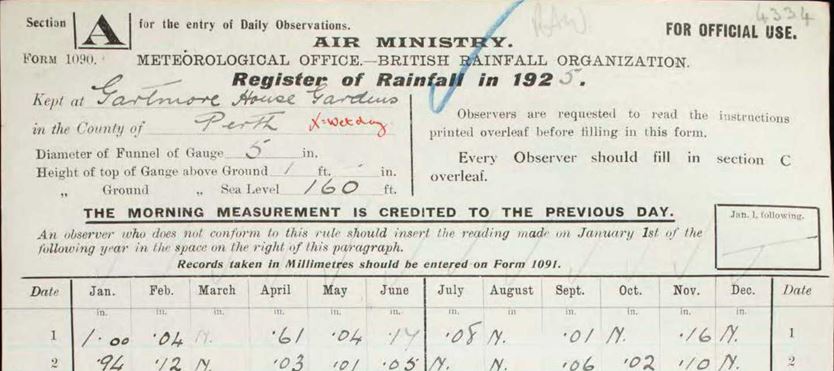 4334
Section A for the entry of Daily Observations.
RAW
FOR OFFICIAL USE.
AIR MINISTRY.
FORM 1090.
METEOROLOGICAL OFFICE.—BRITISH RAINFALL ORGANIZATION.
Register of Rainfall in 1925.
Kept at Gartmore House Gardens
in the County of Perth X=Wet day
Diameter of Funnel of Gauge 5 in.
Height of top of Gauge above Ground 1 ft. - in.
„ Ground „ Sea Level 160 ft.
Observers are requested to read the instructions
printed overleaf before filling in this form.
Every Observer should fill in section C
overleaf.
THE MORNING MEASUREMENT IS CREDITED TO THE PREVIOUS DAY.
An observer who does not conform to this rule should insert the reading made on January 1st of the
following year in the space on the right of this paragraph.
Records taken in Millimetres should be entered on Form 1091.
Jan. 1, following.
Date Jan. Feb. March April May June July August Sept. Oct. Nov. Dec. Date
in. in. in. in. in. in. in. in. in. in. in. in.
1 1.00 .04 N. .61 .04 .17 .08 N. .01 N. .16 N. 1
2 .94 .12 N. .03 .01 .05 N. N. .06 .02 .10 N. 2